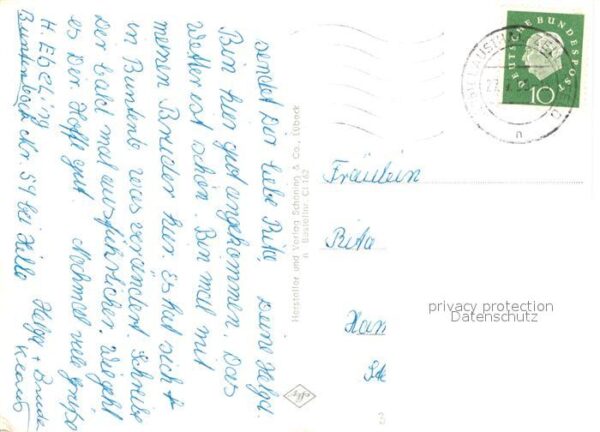 sendet Dir liebe Rita, Deine Helga.
Bin hier gut angekommen. Das
Wetter ist schön. Bin mal mit
meinem Bruder hier. Es hat sich
in Buntenb. was verändert. Schreibe
Dir bald mal ausführlicher. Wie geht
es Dir. Hoffe gut. Nochmal viele Grüße
Helga + Bruder
Klaus
H. Ebeling
Buntenbock Nr. 59 bei
Hersteller und Verlag Schöning & Co., Lübeck
Bestellnr
DEUTSCHE BUNDESPOST
10
Fräulein
Rita
Han
privacy protection
Datenschutz